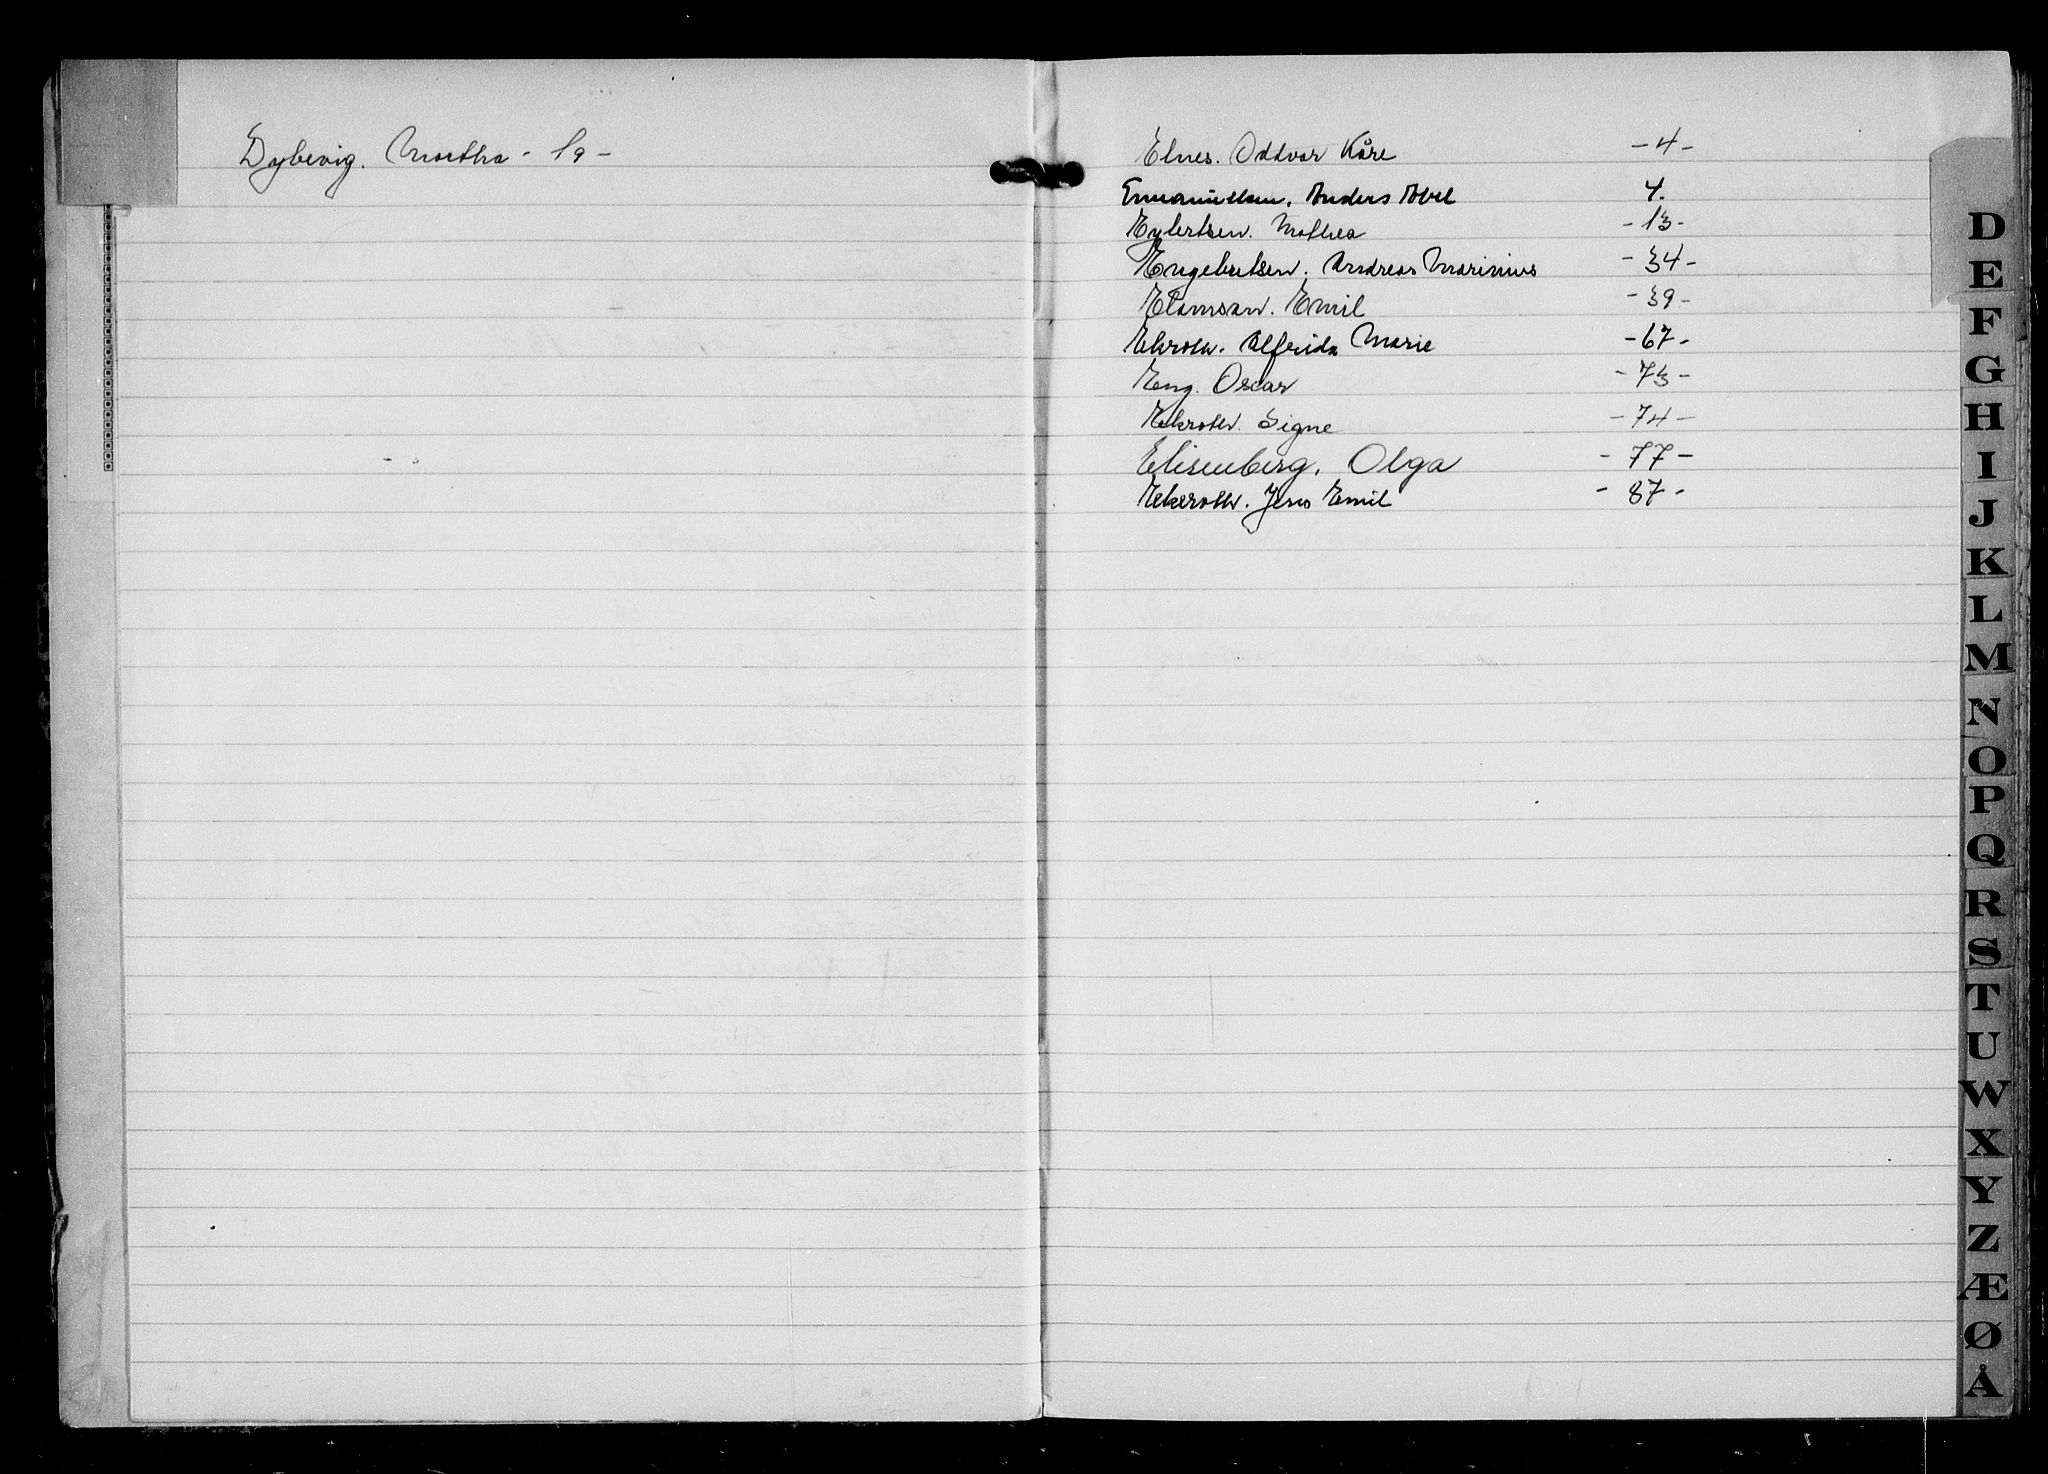 Dybevig. Martha - 19 -
Elnes. Oddvar Kåre - 4 -
Emanuelsen. Anders Abel 4.
Eylertsen. Mathea - 13 -
Engebretsen. Andreas Marinius - 34 -
Elamson. Emil - 39 -
Ekroth. Alfrida Marie - 67 -
Eng. Oscar - 73 -
Ekroth. Signe - 74 -
Elisenberg. Olga - 77 -
Ekeroth. Jens Emil - 87 -
D
E
F
G
H
I
J
K
L
M
N
O
P
Q
R
S
T
U
W
X
Y
Z
Æ
Ø
Å